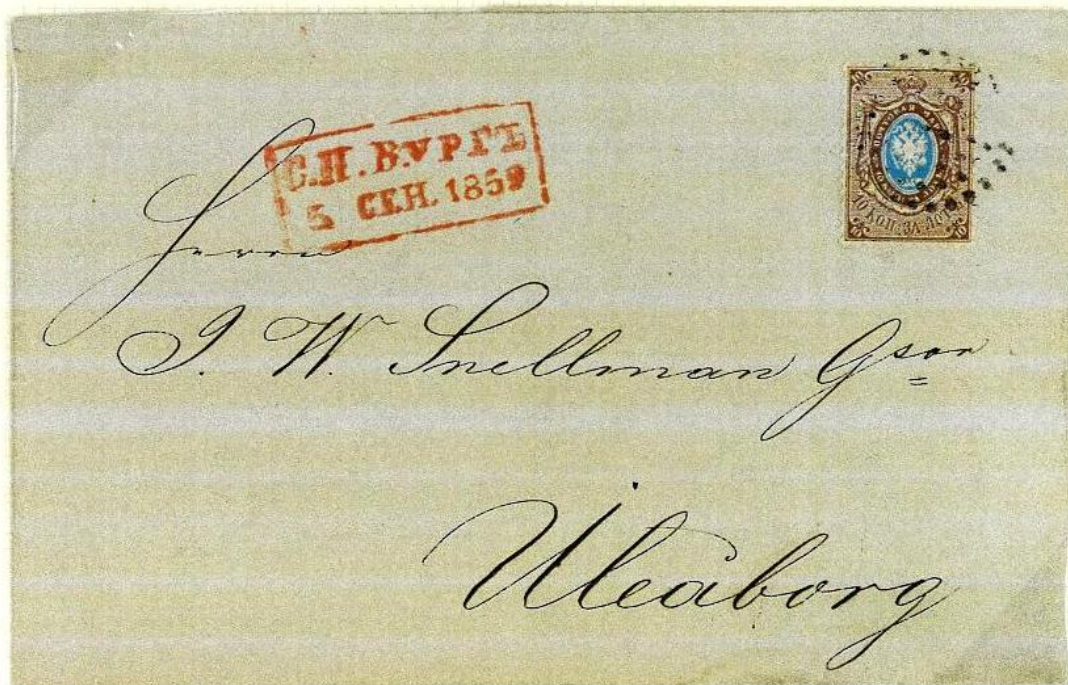 С.П.БУРГЪ
5 СЕН. 1859
10 КОП. ЗА ЛОТЪ
Herrn
J. W. Snellman Gson
Uleåborg